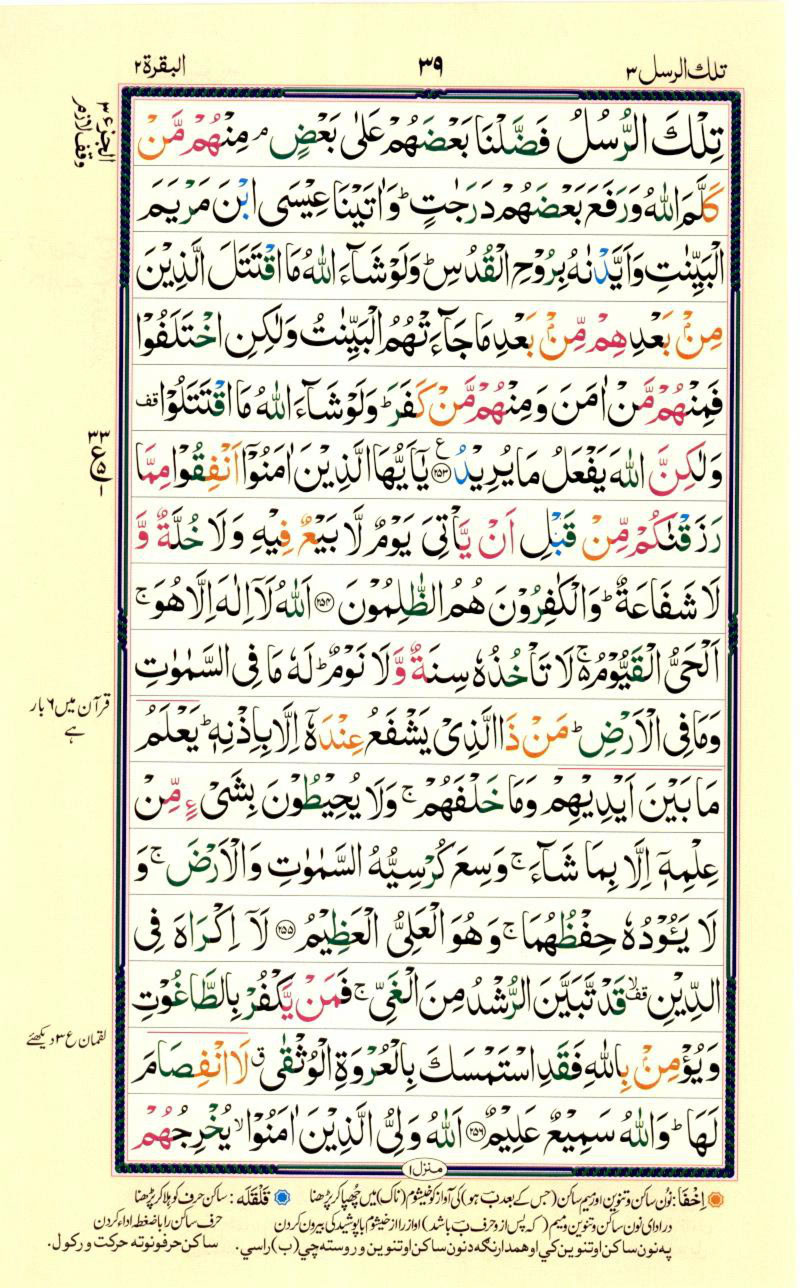 تلك الرسل ٣
٣٩
البقرة ٢
تِلْكَ الرُّسُلُ فَضَّلْنَا بَعْضَهُمْ عَلٰى بَعْضٍ ۘ مِنْهُمْ مَّنْ
كَلَّمَ اللّٰهُ وَرَفَعَ بَعْضَهُمْ دَرَجٰتٍ ؕ وَاٰتَيْنَا عِيْسَى ابْنَ مَرْيَمَ
الْبَيِّنٰتِ وَاَيَّدْنٰهُ بِرُوْحِ الْقُدُسِ ؕ وَلَوْ شَآءَ اللّٰهُ مَا اقْتَتَلَ الَّذِيْنَ
مِنْۢ بَعْدِهِمْ مِّنْۢ بَعْدِ مَا جَآءَتْهُمُ الْبَيِّنٰتُ وَلٰكِنِ اخْتَلَفُوْا
فَمِنْهُمْ مَّنْ اٰمَنَ وَمِنْهُمْ مَّنْ كَفَرَ ؕ وَلَوْ شَآءَ اللّٰهُ مَا اقْتَتَلُوْا قف
وَلٰكِنَّ اللّٰهَ يَفْعَلُ مَا يُرِيْدُ ع ﴿۲۵۳﴾ يٰۤاَيُّهَا الَّذِيْنَ اٰمَنُوْۤا اَنْفِقُوْا مِمَّا
رَزَقْنٰكُمْ مِّنْ قَبْلِ اَنْ يَّاْتِىَ يَوْمٌ لَّا بَيْعٌ فِيْهِ وَلَا خُلَّةٌ وَّ
لَا شَفَاعَةٌ ؕ وَالْكٰفِرُوْنَ هُمُ الظّٰلِمُوْنَ ﴿۲۵۴﴾ اَللّٰهُ لَاۤ اِلٰهَ اِلَّا هُوَ ۚ
اَلْحَىُّ الْقَيُّوْمُ ۬ۚ لَا تَاْخُذُهٗ سِنَةٌ وَّلَا نَوْمٌ ؕ لَهٗ مَا فِى السَّمٰوٰتِ
وَمَا فِى الْاَرْضِ ؕ مَنْ ذَا الَّذِىْ يَشْفَعُ عِنْدَهٗۤ اِلَّا بِاِذْنِهٖ ؕ يَعْلَمُ
مَا بَيْنَ اَيْدِيْهِمْ وَمَا خَلْفَهُمْ ۚ وَلَا يُحِيْطُوْنَ بِشَىْءٍ مِّنْ
عِلْمِهٖۤ اِلَّا بِمَا شَآءَ ۚ وَسِعَ كُرْسِيُّهُ السَّمٰوٰتِ وَالْاَرْضَ ۚ وَ
لَا يَـُٔوْدُهٗ حِفْظُهُمَا ۚ وَهُوَ الْعَلِىُّ الْعَظِيْمُ ﴿۲۵۵﴾ لَاۤ اِكْرَاهَ فِى
الدِّيْنِ قف ۙ قَدْ تَّبَيَّنَ الرُّشْدُ مِنَ الْغَىِّ ۚ فَمَنْ يَّكْفُرْ بِالطَّاغُوْتِ
وَيُؤْمِنْۢ بِاللّٰهِ فَقَدِ اسْتَمْسَكَ بِالْعُرْوَةِ الْوُثْقٰى ق لَا انْفِصَامَ
لَهَا ؕ وَاللّٰهُ سَمِيْعٌ عَلِيْمٌ ﴿۲۵۶﴾ اَللّٰهُ وَلِىُّ الَّذِيْنَ اٰمَنُوْا ۙ يُخْرِجُهُمْ
الجزء ٣
وقف لازم
٣٣
ع
٥
قرآن میں ۶ بار
ہے
لقمان ع ۳ دیکھئے
منزل ۱
اِخْفَا: نُون ساکن و تنوین اور میم ساکن (جس کے بعد ب ہو) کی آواز کو خیشوم (ناک) میں چُھپا کر پڑھنا
قَلْقَلَه: ساکن حرف کو ہلا کر پڑھنا
در ادای نون ساکن و تنوین و میم (که پس از و حرف ب باشد) اواز را از خیشوم با پوشید کی بیرون کردن
حرف ساکن را باضغطه اداء کردن
په نون ساکن او تنوین کي او همدارنگه د نون ساکن او تنوین و روسته چي (ب) راسي.
ساکن حرفونو ته حرکت ورکول.